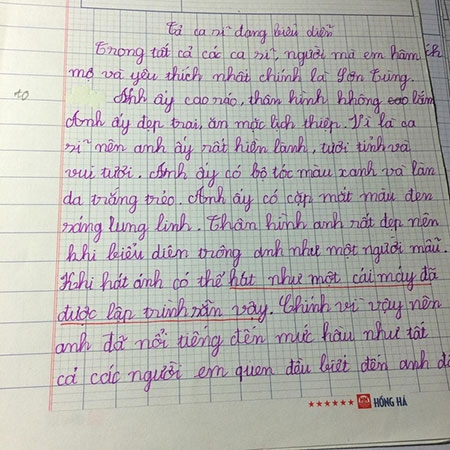 Tả ca sĩ đang biểu diễn
Trong tất cả các ca sĩ, người mà em hâm
mộ và yêu thích nhất chính là Sơn Tùng.
10
Anh ấy cao ráo, thân hình không cao lắm
Anh ấy đẹp trai, ăn mặc lịch thiệp. Vì là ca
sĩ nên anh ấy rất hiền lành, tười tỉnh và
vui tười. Anh ấy có bộ tóc màu xanh và làn
da trắng trẻo. Anh ấy có cặp mắt màu đen
sáng lung linh. Thân hình anh rất đẹp nên
khi biểu diễn trông anh như một người mẫu.
Khi hát ánh có thể hát như một cái máy đã
được lập trình sẵn vậy. Chính vì vậy nên
anh đã nổi tiếng đến mức hầu như tất
cả các người em quen đều biết đến anh
★★★★★★ HỒNG HÀ